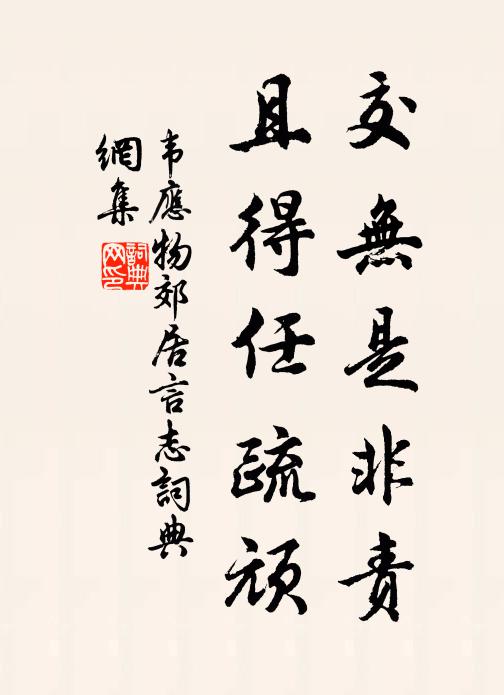 交無是非責
且得任疏頑
韦應物郊居言志詞典
網集
詞典
网印